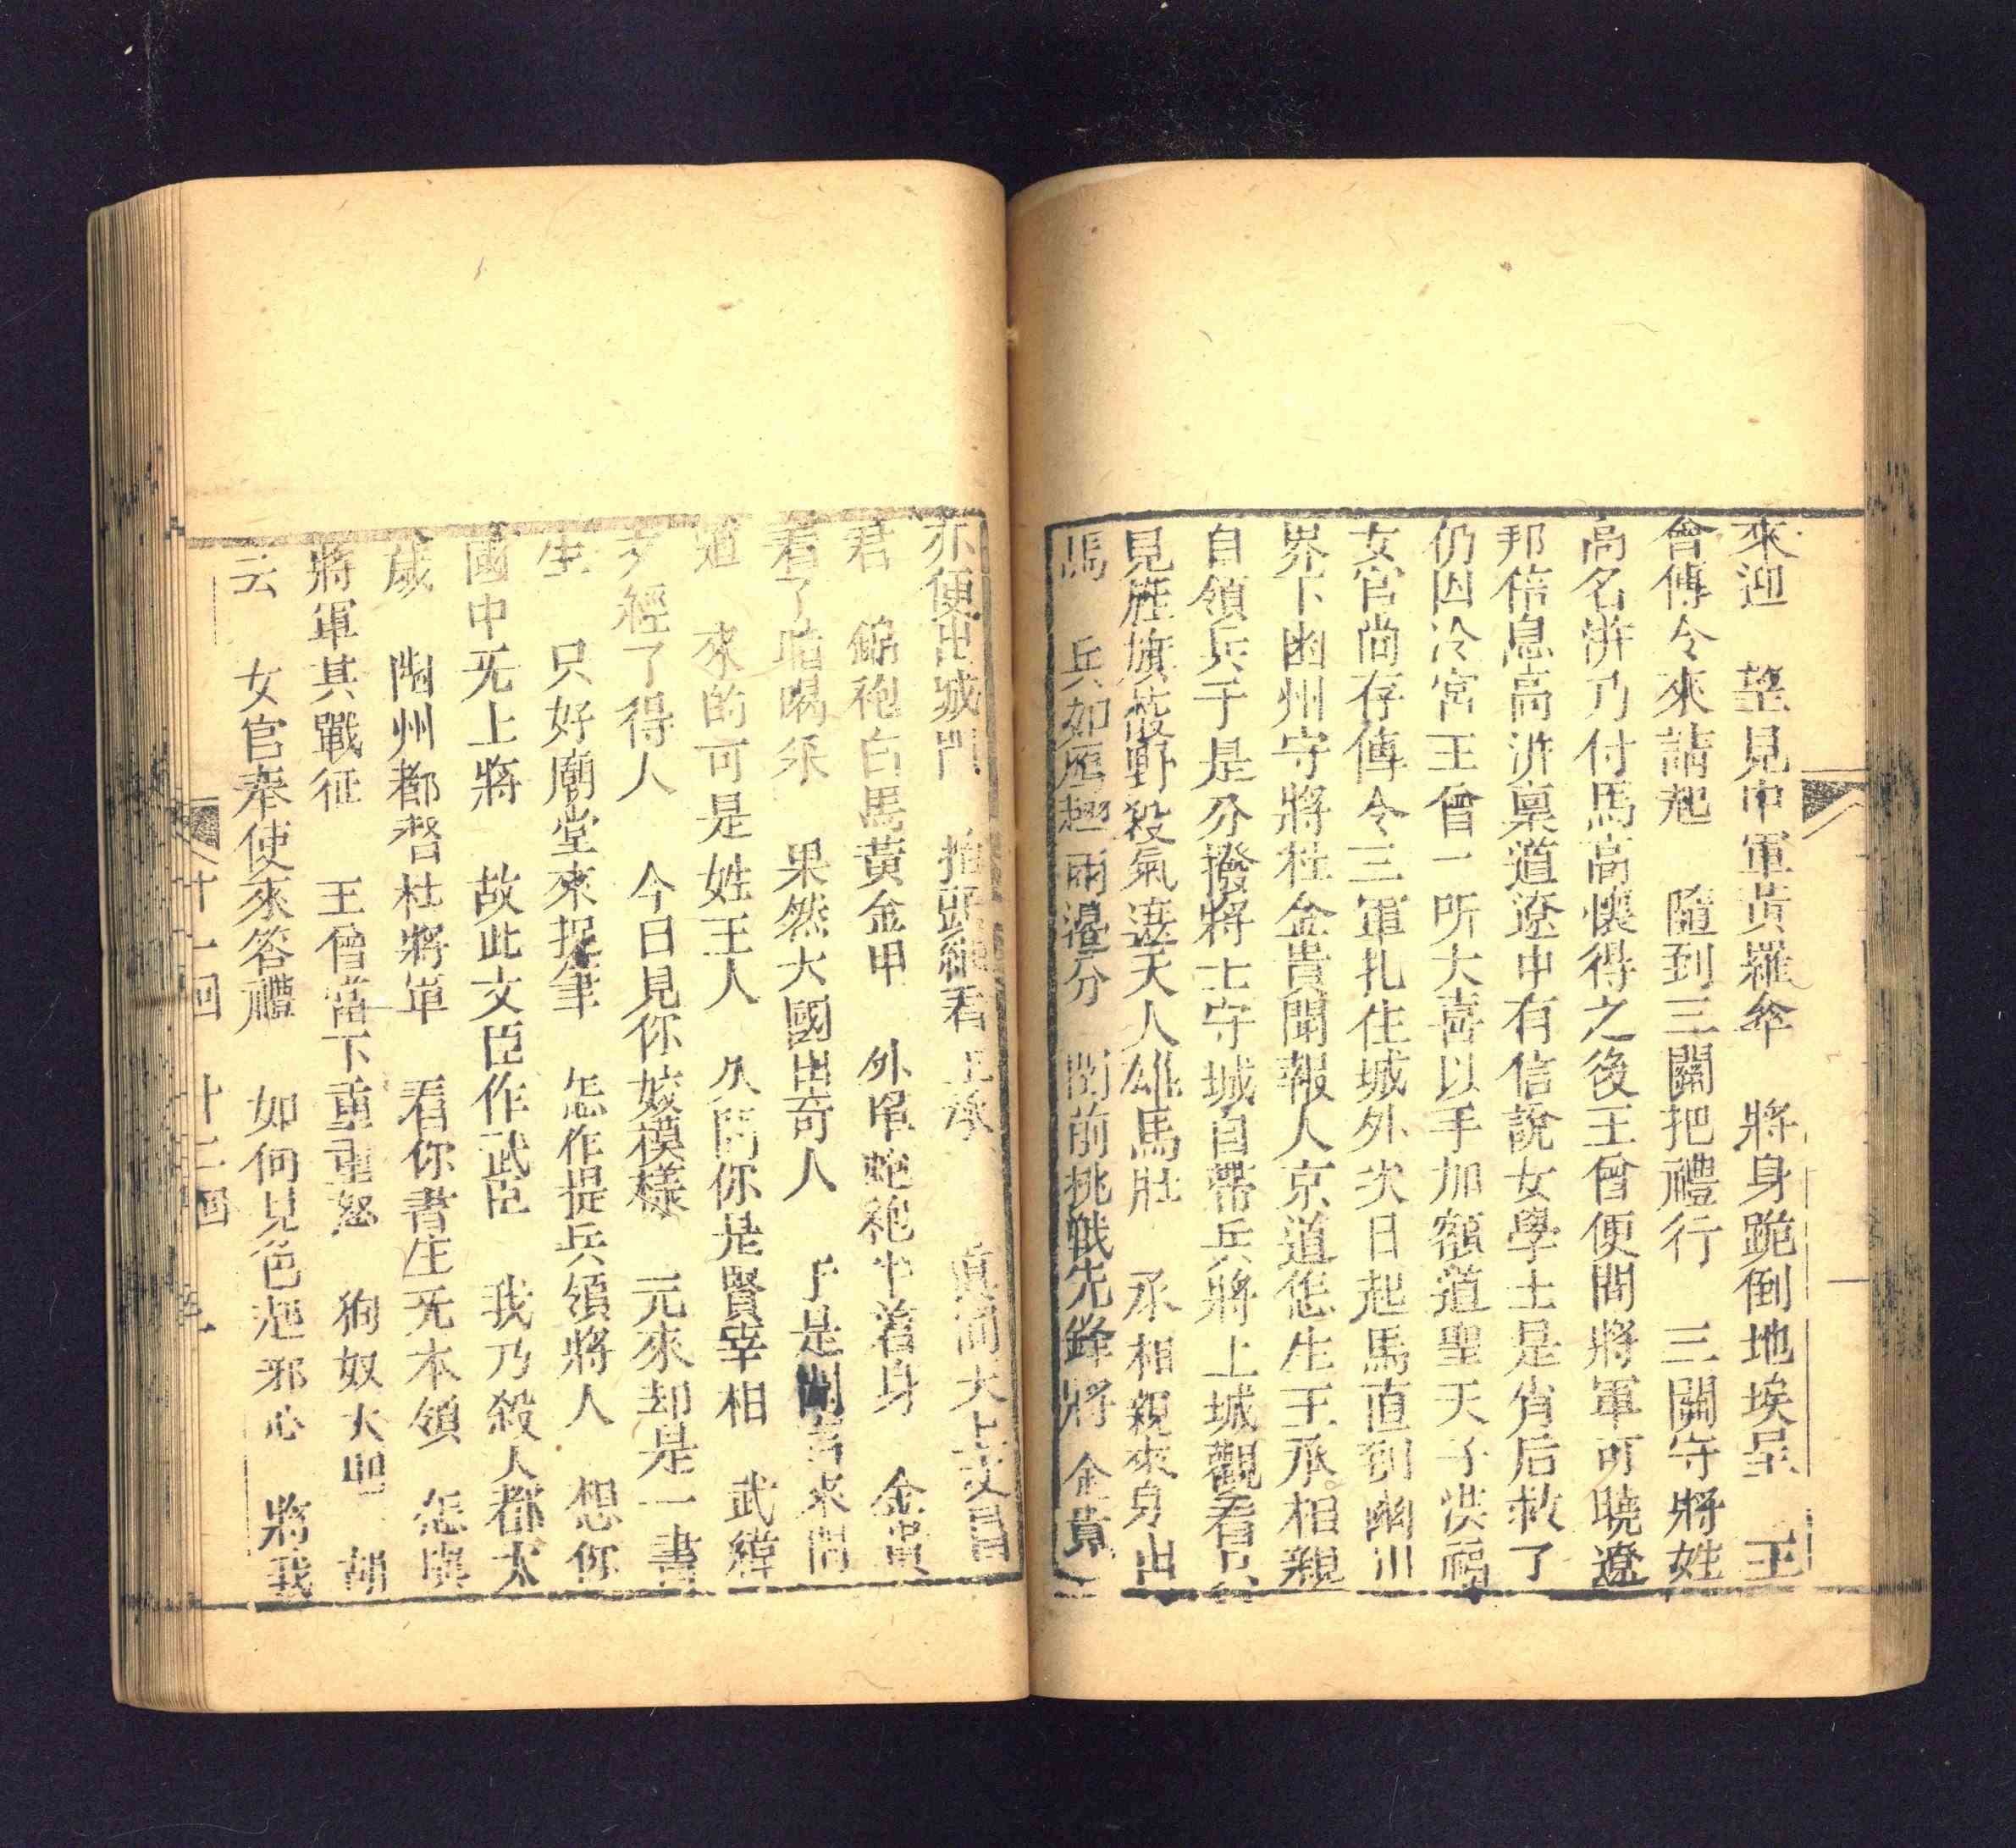 來迎　望見中軍黃羅傘　將身跪倒地埃呈　王
曾傳令來請起　隨到三關把禮行　三關守將姓
高名滸乃付馬高懷得之後王曾便問將軍可曉遼
邦信息高滸稟道遼中有信說女學士是肖后救了
仍囚冷宮王曾一听大喜以手加額道聖天子洪福
女官尚存傳令三軍扎住城外次日起馬直到幽川
界下幽州守將杜金貴聞報人京道怎生王承相親
自領兵于是分撥將士守城自帶兵將上城觀看只
見旌旗蔽野殺氣連天人雄馬壯　承相親來身出
馬　兵如雁翅兩邊分　関前挑戦先鋒將　金貴
亦便出城門　抬頭細看王承　真滴大上文昌
君　錦袍白馬黃金甲　外罩蛇袍中着身　金貴
看了暗喝采　果然大國出奇人　于是開言來問
道　來的可是姓王人　久聞你是賢宰相　武緯
文經了得人　今日見你姣模樣　元來却是一書
生　只好廟堂來捉筆　怎作提兵領將人　想你
國中旡上將　故此文臣作武臣　我乃殺人都太
歲　幽州都督杜將軍　看你書生旡本領　怎與
將軍其戰征　王曾當下重重怒　狗奴大胆　胡
云　女官奉使來答禮　如何見色起邪心　將我
十一回　十二回